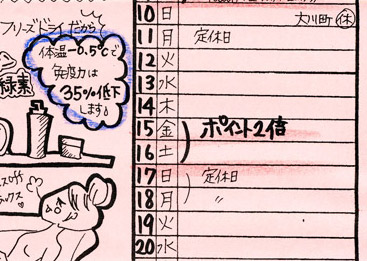 フリーズドライだから
体温-0.5℃で
免疫力は
35%低下
します
緑素
10 日 大川町 休
11 月 定休日
12 火
13 水
14 木
15 金 ポイント2倍
16 土
17 日 定休日
18 月 〃
19 火
20 水